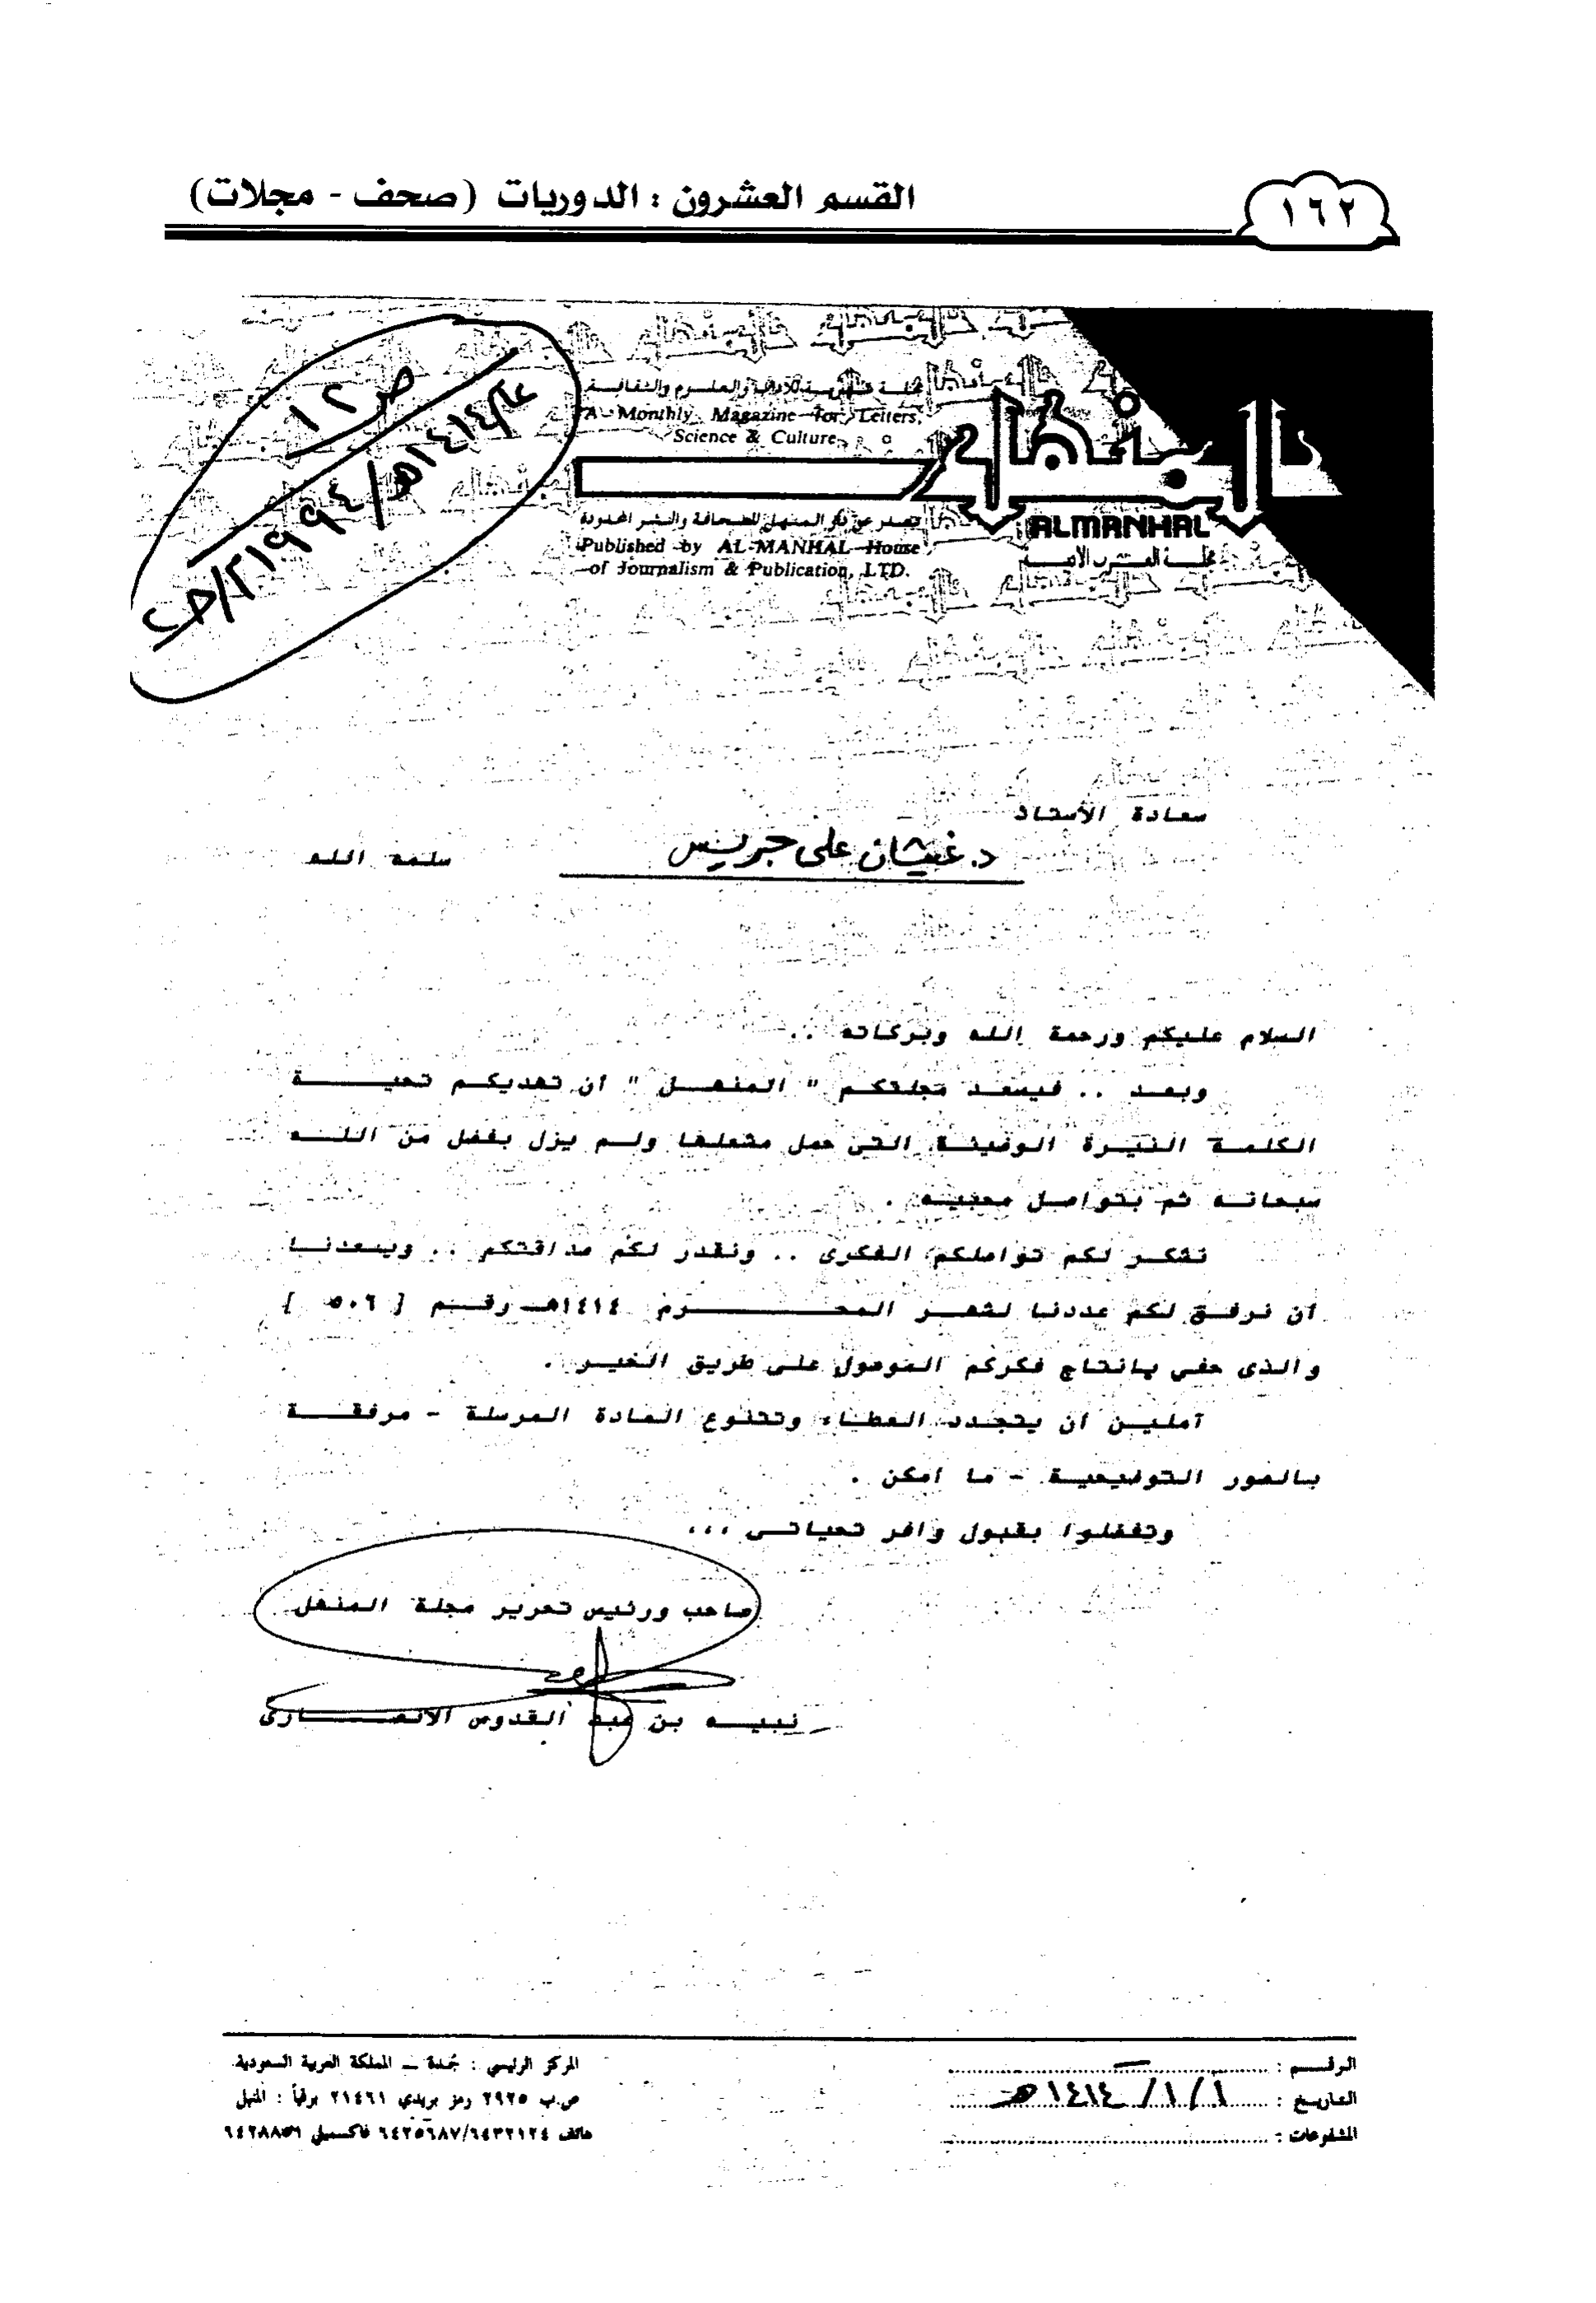 القسم العشرون : الدوريات (صحف - مجلات)
١٦٢
ص ١٢
مجلة شهرية للآداب والعلوم والثقافة
A Monthly Magazine for Letters,
Science & Culture
المنهل
ALMANHAL
تصدر عن دار المنهل للصحافة والنشر المحدودة
Published by AL-MANHAL House
of Journalism & Publication, LTD.
سعادة الأستاذ
د. غيثان علي جريس
سلمه الله
السلام عليكم ورحمة الله وبركاته ..
وبعد .. فيسعد مجلتكم " المنهل " أن تهديكم تحية
الكلمة النيرة الوضيئة التى حمل مشعلها ولم يزل بفضل من الله
سبحانه ثم بتواصل محبيه .
نشكر لكم تواصلكم الفكرى .. ونقدر لكم صداقتكم .. ويسعدنا
أن نرفق لكم عددنا لشهر المحرم ١٤١٤هـ رقم [ ٥٠٦ ]
والذى حفى بإنتاج فكركم الموصول على طريق الخير .
آملين أن يتجدد العطاء وتتنوع المادة المرسلة - مرفقة
بالصور التوضيحية - ما أمكن .
وتفضلوا بقبول وافر تحياتى ...
صاحب ورئيس تحرير مجلة المنهل
نبيه بن عبد القدوس الأنصارى
الرقم :
التاريخ : ١ / ١ / ١٤١٤ هـ
المشفوعات :
المركز الرئيسي : جدة – المملكة العربية السعودية
ص.ب ٢٩٢٥ رمز بريدي ٢١٤٦١ برقياً : المنهل
هاتف ٦٤٣٢١٢٤/٦٤٢٥٦٨٧ فاكسميلي ٦٤٢٨٨٥٦